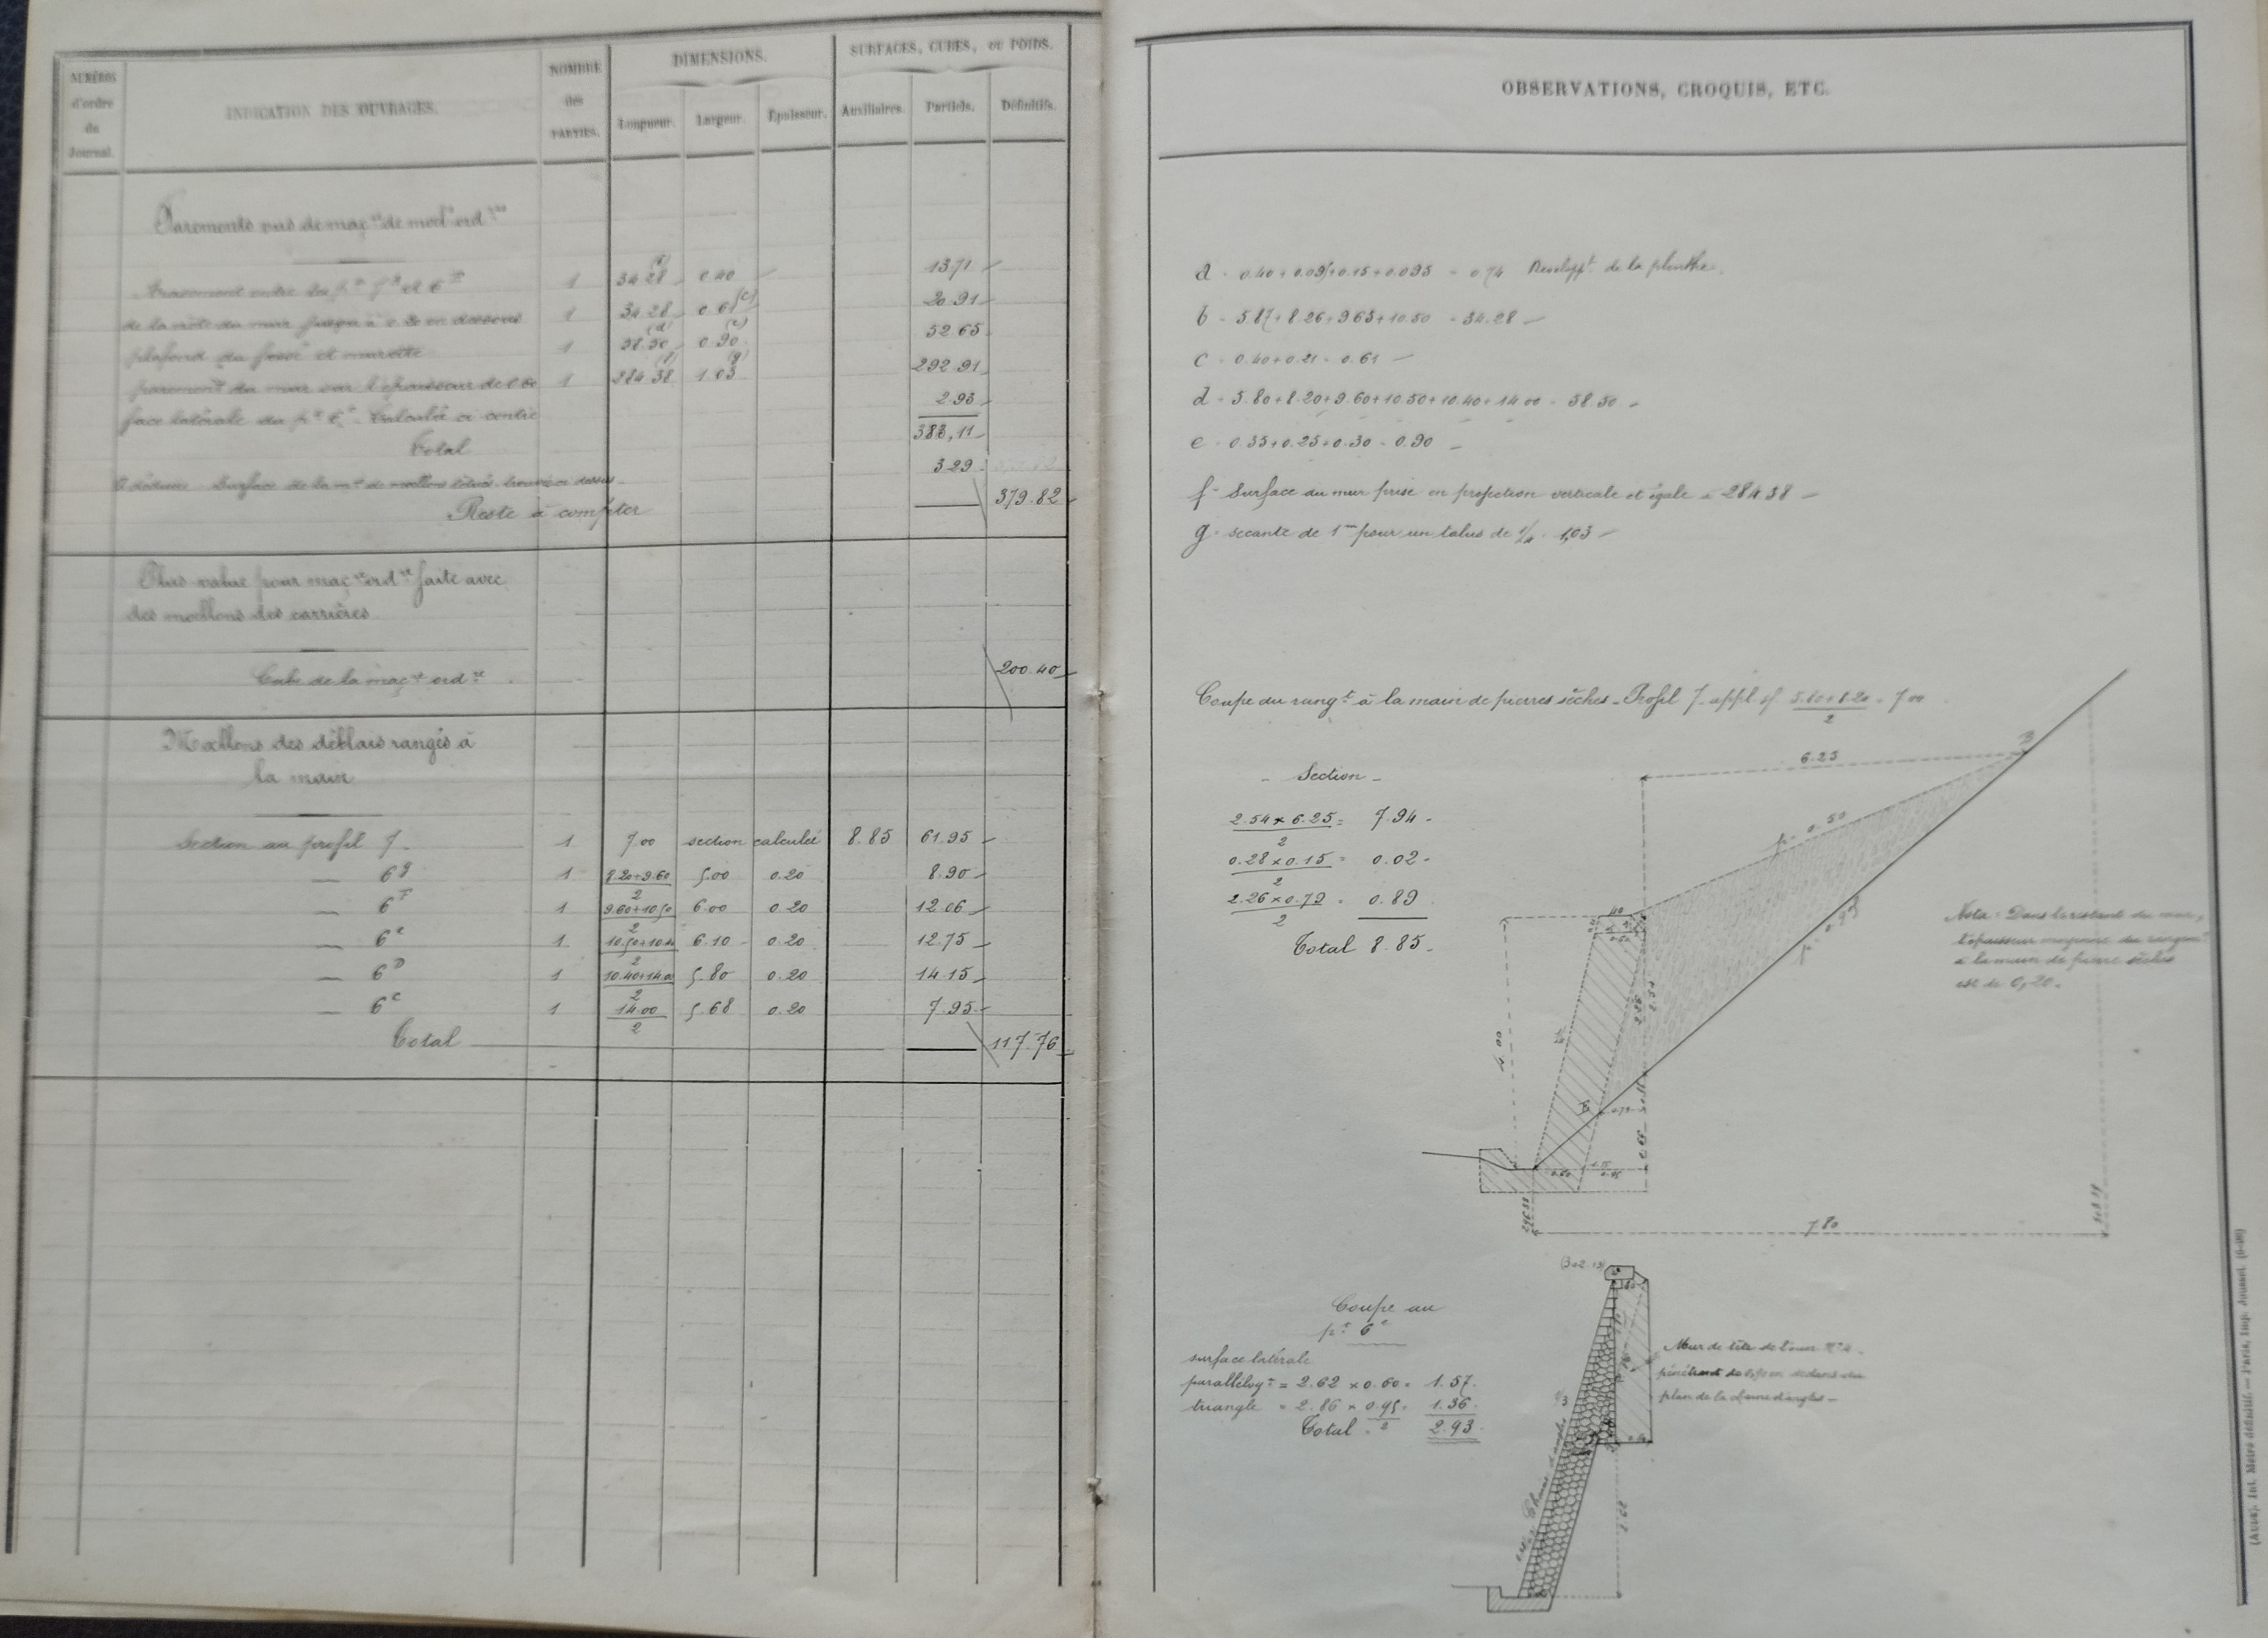 NUMÉROS
d'ordre
du
Journal.
INDICATION DES OUVRAGES.
NOMBRE
des
PARTIES.
DIMENSIONS.
Longueur. Largeur. Épaisseur.
SURFACES, CUBES, OU POIDS.
Auxiliaires. Partiels. Définitifs.
Parements vus de maç.rie de moel. ord.res
entre les p.ts 7 et 6 1 34 28 0 40 13.71
de la crête du mur jusqu'à en dessous 1 34 28 0 61 (c) 20.91
plafond du fossé et murette 1 58 50 (d) 0 90 (e) 52 65
parement du mur sur l'épaisseur de 0.60 1 284 38 (f) 1 03 (g) 292.91
face latérale du p.t 6 Calculée ci contre 2.93
Total 383,11
A déduire Surface de la m.ie de moellons têtués trouvée ci dessus 3 29
Reste à compter 379.82
Plus value pour maç.rie ord.re faite avec
des moellons des carrières
Cube de la maç.rie ord.re 200.40
Moellons des déblais rangés à
la main
Section au profil 7 1 7.00 section calculée 8.85 61.95
— 6g 1 8.20+9.60/2 5.00 0.20 8.90
— 6F 1 9.60+10.50/2 6.00 0.20 12.06
— 6e 1 10.50+10.40/2 6.10 0.20 12.75
— 6D 1 10.40+14.00/2 5.80 0.20 14.15
— 6c 1 14.00/2 5.68 0.20 7.95
Total 117.76
OBSERVATIONS, CROQUIS, ETC.
a = 0.40+0.095+0.15+0.095 = 0.74 Développ.t de la plinthe.
b = 5.87+8.26+9.65+10.50 = 34.28
c = 0.40+0.21 = 0.61
d = 5.80+8.20+9.60+10.50+10.40+14.00 = 58.50
e = 0.35+0.25+0.30 = 0.90
f = Surface du mur prise en projection verticale et égale à 284.38
g = secante de 1m pour un talus de 1/4 = 1,03
Coupe du rang.t à la main de pierres sèches - Profil 7 appl. s/ 5.80+8.20/2 = 7.00
- Section -
2.54 x 6.25/2 = 7.94
0.28 x 0.15/2 = 0.02
2.26 x 0.79/2 = 0.89
Total 8.85
6.25
B
p = 0.50
Nota: Dans le restant du mur,
l'épaisseur moyenne du rangem.t
à la main de pierre sèches
est de 0,20.
4.00
2.54
0.60
7.80
Coupe au
p.t 6c
surface latérale
parallélog.e = 2.62 x 0.60 = 1.57
triangle = 2.86 x 0.95/2 = 1.36
Total 2.93
Mur de tête de l'ouv. N° 4
pénétrant de en dedans du
plan de la chaine d'angles
1/3
(Auto). Jul. Métré définitif. — Paris, Imp. Jousset. (6-98)